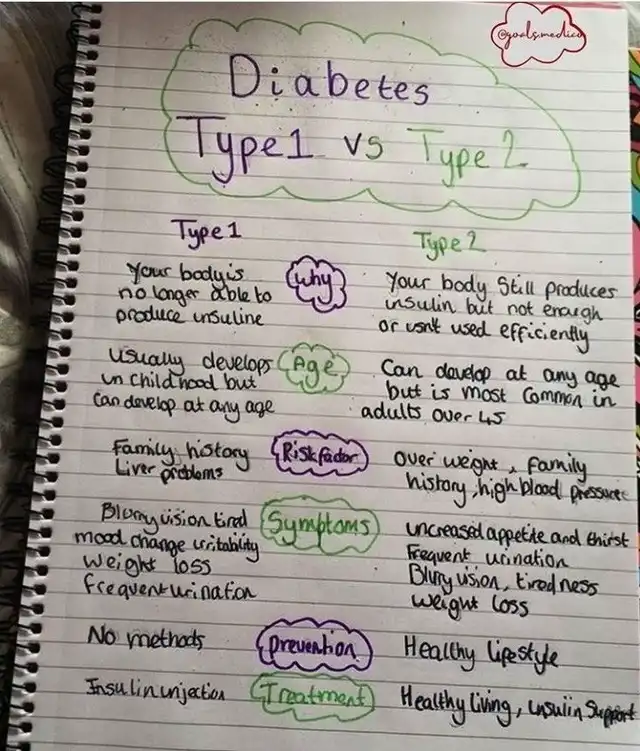 @goals.medico
Diabetes
Type 1 vs Type 2
Type 1
Type 2
Why
Your body is
no longer able to
produce insuline
Your body Still produces
insulin but not enough
or isn't used efficiently
Age
Usually develops
in childhood but
can develop at any age
Can develop at any age
but is most common in
adults over 45
Risk factor
Family history
Liver problems
Over weight, family
history, high blood pressure
Symptoms
Blurry vision tired
mood change irritability
weight loss
frequent urination
increased appetite and thirst
Frequent urination
Blurry vision, tiredness
weight loss
prevention
No methods
Healthy lifestyle
Treatment
Insulin injection
Healthy living, insulin support